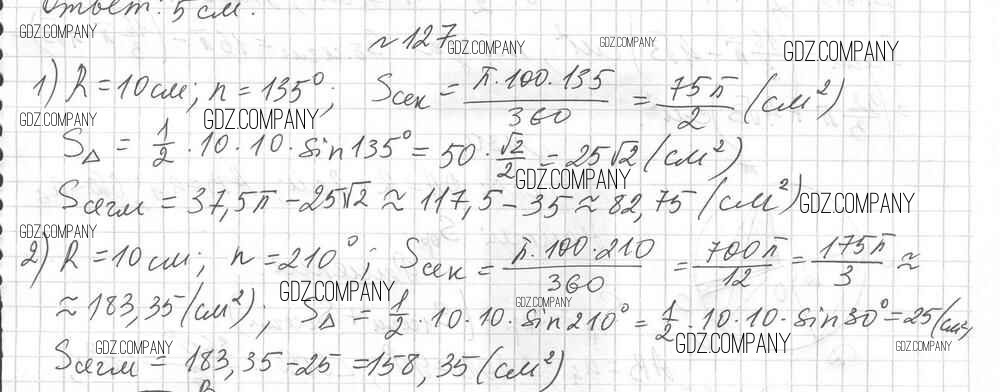 Ответ: 5 см.
GDZ.COMPANY
№127
GDZ.COMPANY GDZ.COMPANY GDZ.COMPANY
1) R = 10 см; n = 135°; Sсек = π·100·135/360 = 75π/2 (см²)
GDZ.COMPANY GDZ.COMPANY
S△ = 1/2 · 10 · 10 · sin 135° = 50 · √2/2 = 25√2 (см²)
GDZ.COMPANY
Sсегм = 37,5π − 25√2 ≈ 117,5 − 35 ≈ 82,75 (см²)
GDZ.COMPANY
GDZ.COMPANY
2) R = 10 см; n = 210°; Sсек = π·100·210/360 = 700π/12 = 175π/3 ≈
GDZ.COMPANY GDZ.COMPANY
≈ 183,35 (см²); S△ = 1/2 · 10 · 10 · sin 210° = 1/2 · 10 · 10 · sin 30° = 25 (см²)
GDZ.COMPANY GDZ.COMPANY GDZ.COMPANY
Sсегм = 183,35 − 25 = 158,35 (см²)